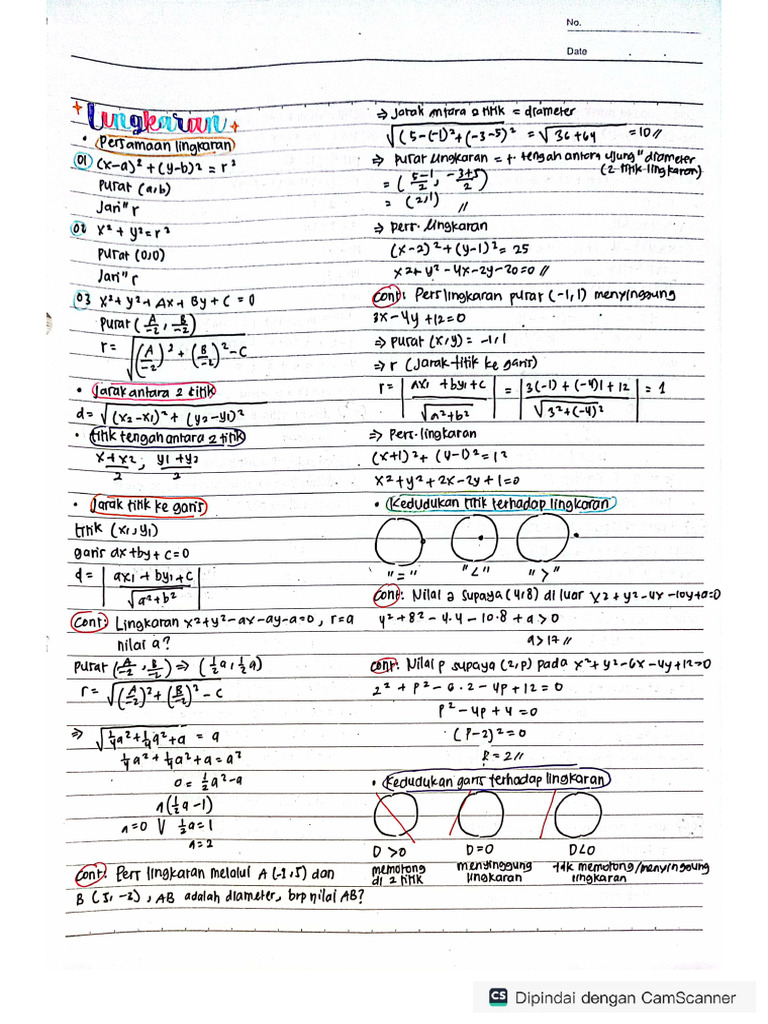 No.
Date
Lingkaran
• Persamaan lingkaran
01 (x-a)² + (y-b)² = r²
pusat (a,b)
Jari" r
02 x² + y² = r²
pusat (0,0)
Jari" r
03 x² + y² + Ax + By + C = 0
pusat (A/-2, B/-2)
r = √((A/-2)² + (B/-2)² - C)
• Jarak antara 2 titik
d = √((x2-x1)² + (y2-y1)²)
• titik tengah antara 2 titik
x+x2/2 ; y1+y2/2
• Jarak titik ke garis
titik (x1,y1)
garis ax+by+c=0
d = |ax1+by1+c / √(a²+b²)|
Cont: Lingkaran x²+y²-ax-ay-a=0, r=a
nilai a?
pusat (A/-2, B/-2) ⇒ (½a, ½a)
r = √((A/-2)² + (B/-2)² - C)
⇒ √(¼a²+¼a²+a) = a
¼a² + ¼a² + a = a²
0 = ½a²-a
a(½a-1)
a=0 V ½a=1
a=2
Cont: Pers lingkaran melalui A(-1,5) dan
B (5,-3), AB adalah diameter, brp nilai AB?
⇒ Jarak antara 2 titik = diameter
√(5-(-1)²+(-3-5)² = √36+64 = 10 //
⇒ pusat lingkaran = t. tengah antara ujung" diameter
(2 titik lingkaran)
= (5-1/2, -3+5/2)
= (2,1) //
⇒ pers. lingkaran
(x-2)² + (y-1)² = 25
x²+y²-4x-2y-20=0 //
Cont: Pers lingkaran pusat (-1,1) menyinggung
3x-4y+12=0
⇒ pusat (x,y) = -1,1
⇒ r (Jarak titik ke garis)
r = |ax1+by1+c / √(a²+b²)| = |3(-1)+(-4)1+12 / √(3²+(-4)²)| = 1
⇒ Pers. lingkaran
(x+1)² + (y-1)² = 1²
x²+y²+2x-2y+1=0
• Kedudukan titik terhadap lingkaran
"=" "<" ">"
Cont: Nilai a supaya (4,8) di luar x²+y²-4x-10y+a=0
4²+8²-4.4-10.8+a>0
a>17 //
Cont: Nilai p supaya (2,p) pada x²+y²-6x-4y+12=0
2²+p²-6.2-4p+12=0
p²-4p+4=0
(p-2)²=0
p=2 //
• Kedudukan garis terhadap lingkaran
D>0 D=0 D<0
memotong menyinggung tdk memotong/menyinggung
di 2 titik lingkaran lingkaran
CS Dipindai dengan CamScanner